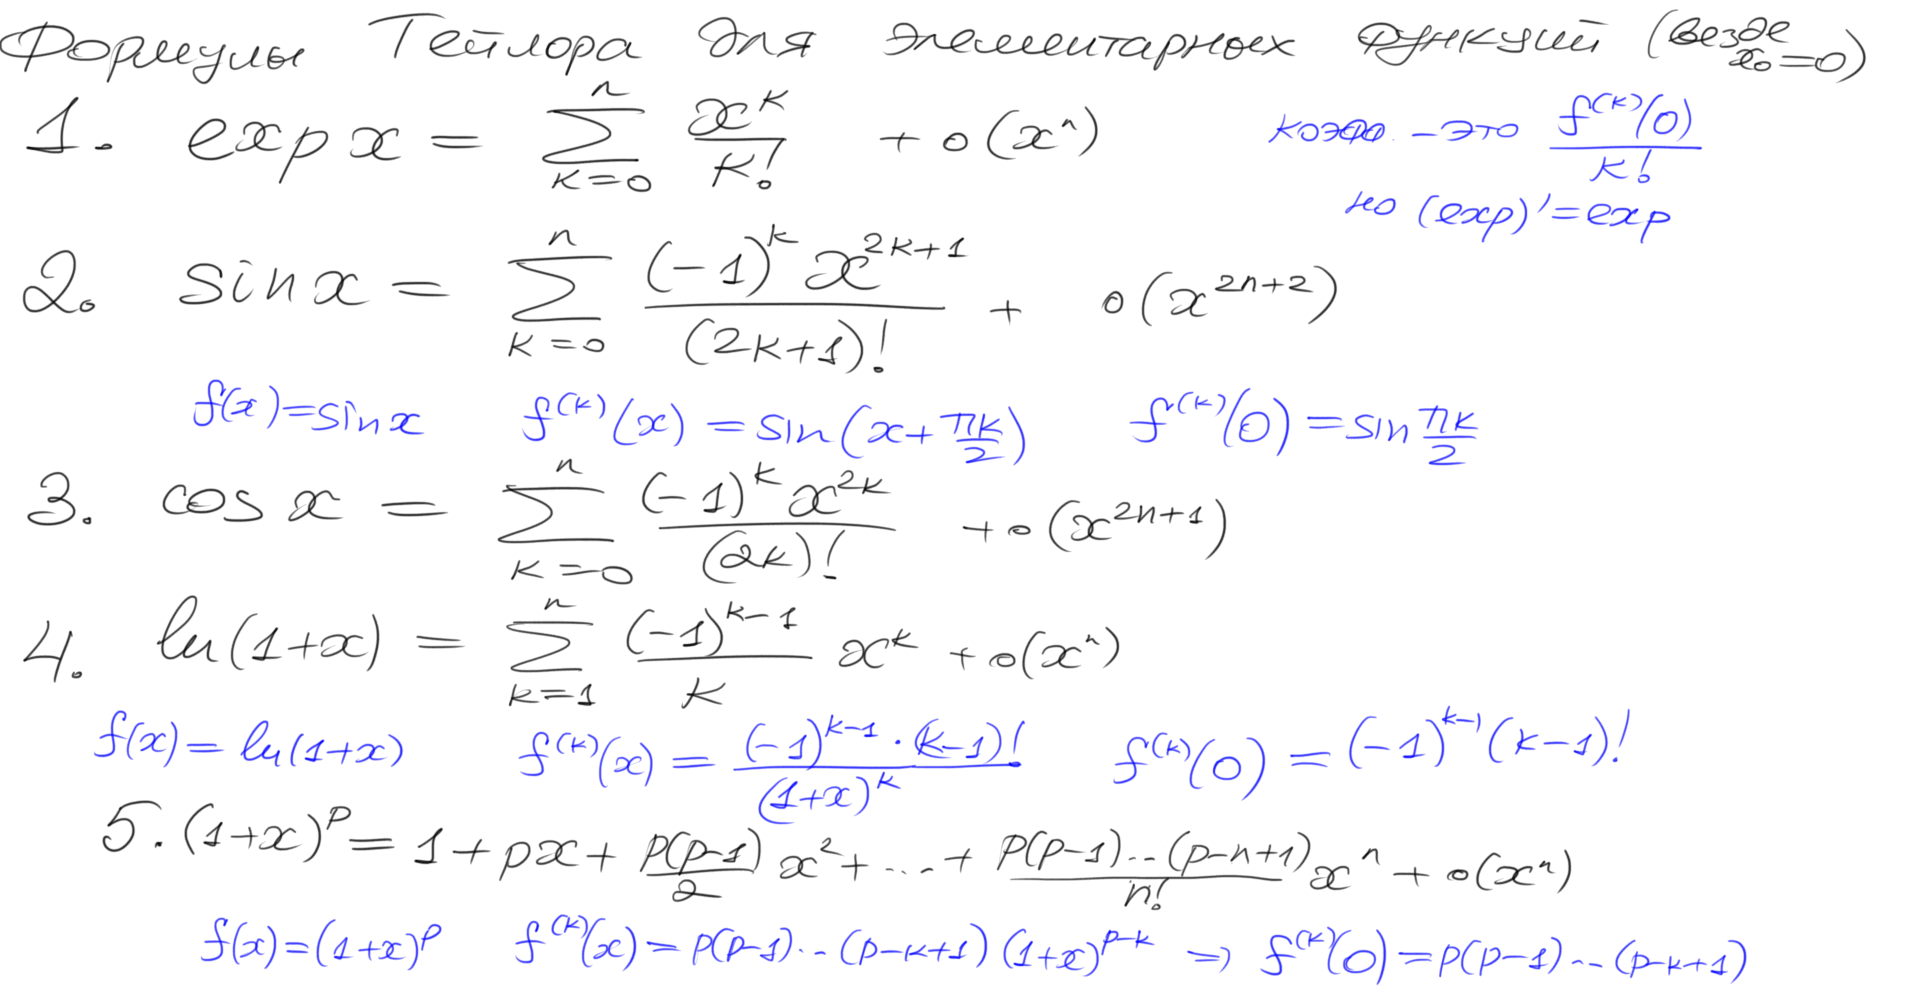 Формулы Тейлора для элементарных функций (везде x₀=0)
1. exp x = ∑_{k=0}^{n} x^k/k! + o(x^n)
коэфф. – это f^{(k)}(0)/k!
но (exp)' = exp
2. sin x = ∑_{k=0}^{n} (-1)^k x^{2k+1}/(2k+1)! + o(x^{2n+2})
f(x) = sin x f^{(k)}(x) = sin(x + πk/2) f^{(k)}(0) = sin πk/2
3. cos x = ∑_{k=0}^{n} (-1)^k x^{2k}/(2k)! + o(x^{2n+1})
4. ln(1+x) = ∑_{k=1}^{n} (-1)^{k-1}/k x^k + o(x^n)
f(x) = ln(1+x) f^{(k)}(x) = (-1)^{k-1}·(k-1)!/(1+x)^k f^{(k)}(0) = (-1)^{k-1}(k-1)!
5. (1+x)^p = 1 + px + p(p-1)/2 x^2 + ... + p(p-1)...(p-n+1)/n! x^n + o(x^n)
f(x) = (1+x)^p f^{(k)}(x) = p(p-1)...(p-k+1)(1+x)^{p-k} ⇒ f^{(k)}(0) = p(p-1)...(p-k+1)